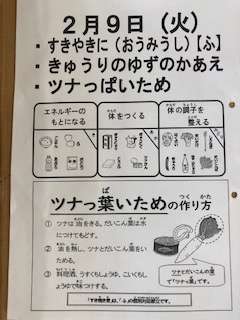 2月9日（火）
・すきやきに（おうみうし）【ふ】
・きゅうりのゆずのかあえ
・ツナっぱいため
エネルギーの
もとになる
体をつくる
体の調子を
整える
ツナっ葉いための作り方
① ツナは油をきる。だいこん葉は水
につけてもどす。
② 油を熱し、ツナとだいこん葉をい
ためる。
③ 料理酒、うすくちしょうゆ、こいくちし
ょうゆで味つけする。
ツナとだいこんの葉
で「ツナっ葉」です。